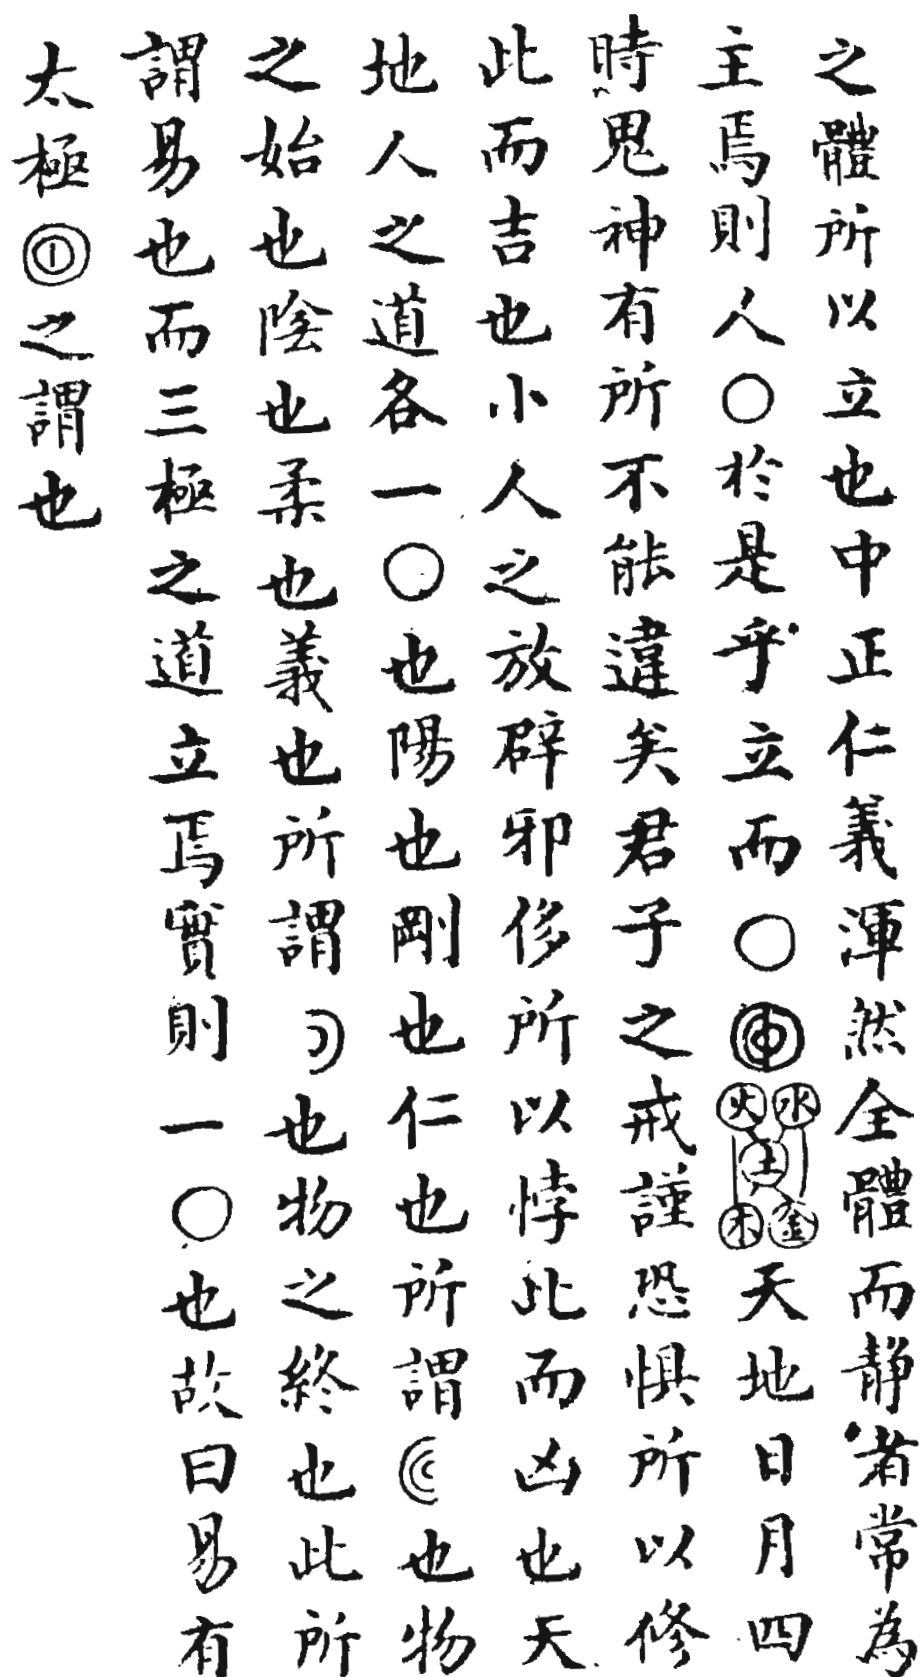 之體所以立也中正仁義渾然全體而静者常為
主焉則人○於是乎立而○◎水火土木金天地日月四
時鬼神有所不能違矣君子之戒謹恐惧所以修
此而吉也小人之放辟邪侈所以悖此而凶也天
地人之道各一○也陽也剛也仁也所謂也物
之始也陰也柔也義也所謂也物之終也此所
謂易也而三極之道立焉實則一○也故曰易有
太極◎之謂也